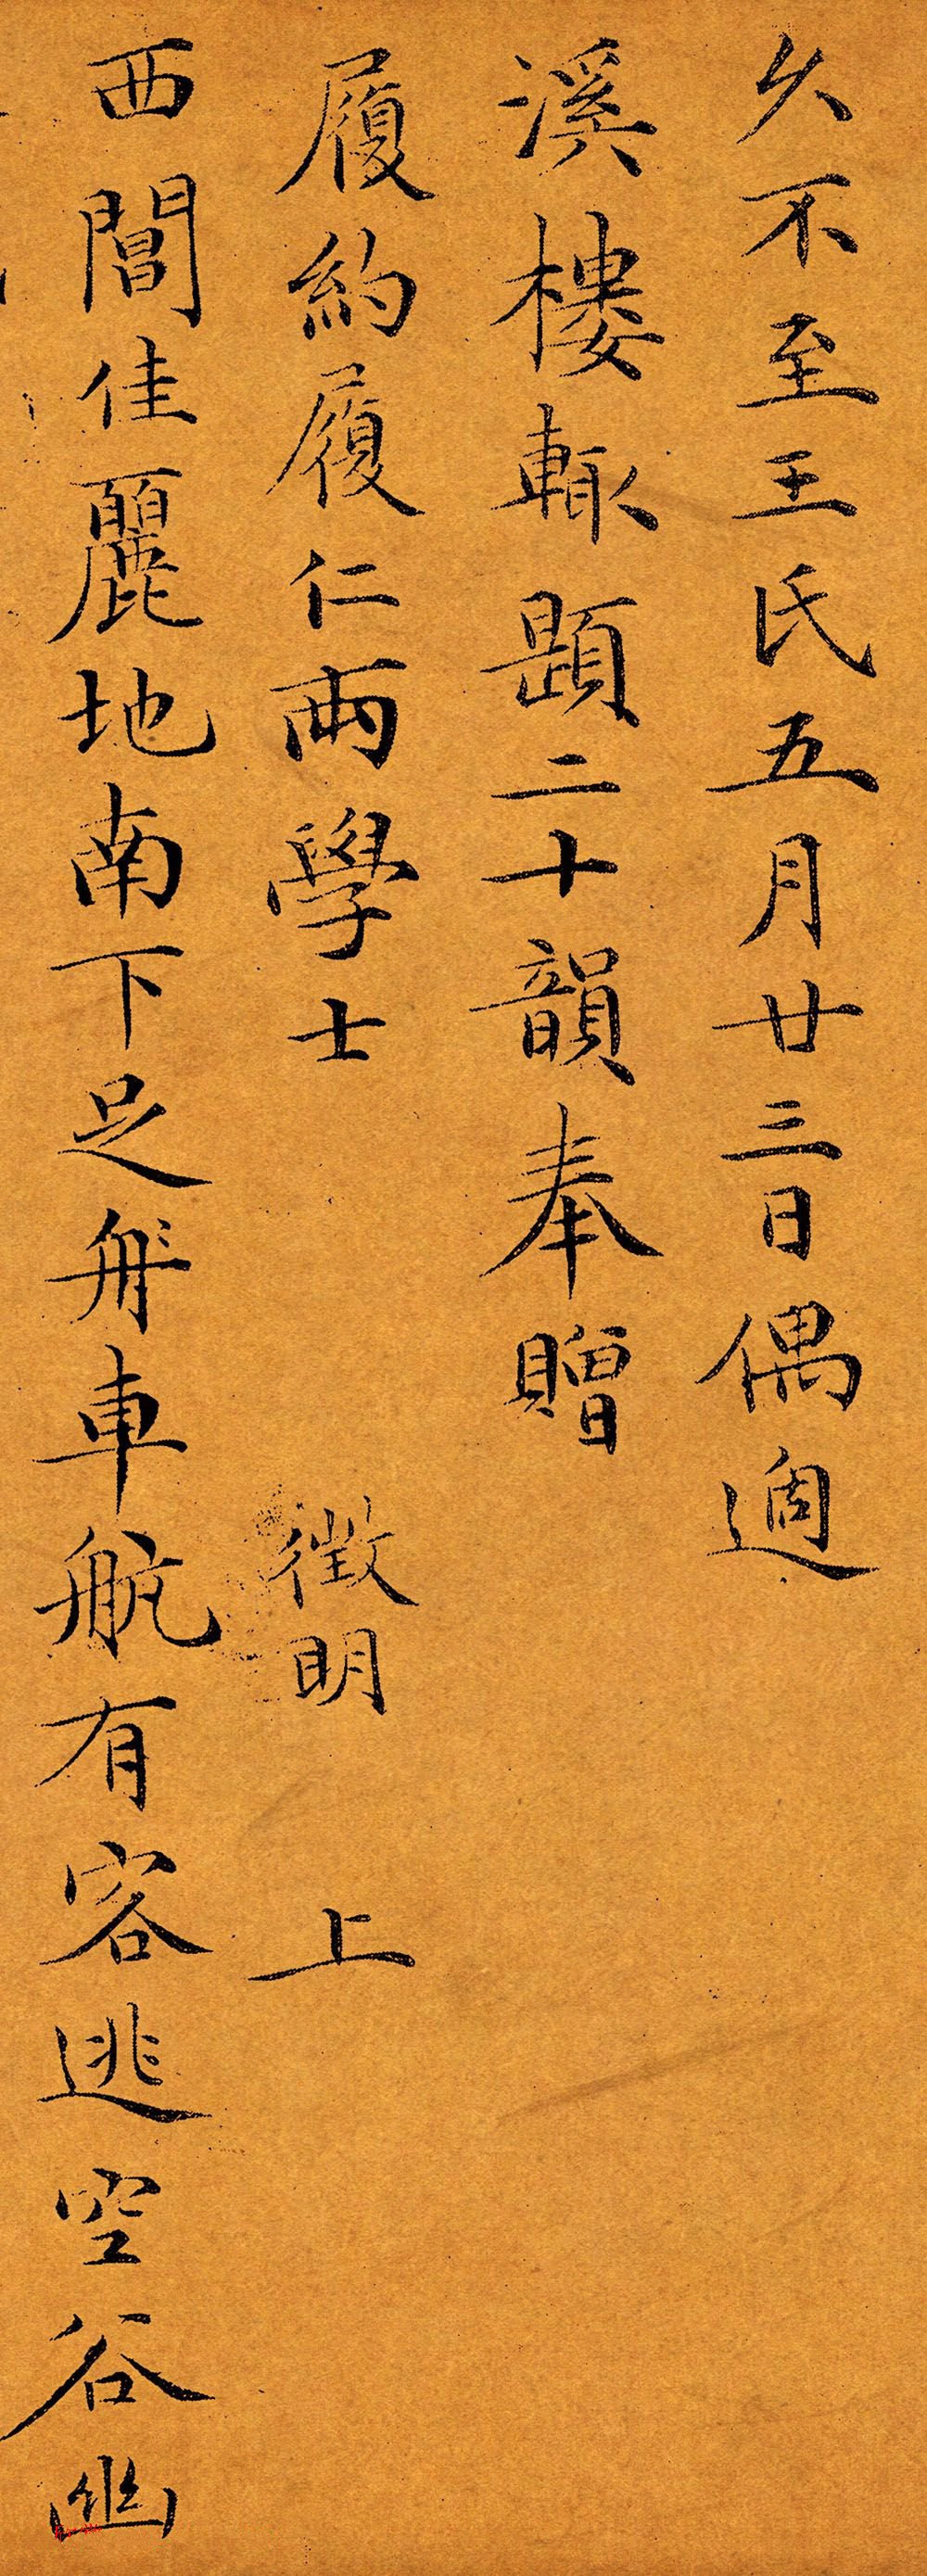 久不至王氏五月廿三日偶適
溪樓輒題二十韻奉贈
履約履仁兩學士 徵明 上
西閶佳麗地南下足舟車航有客逃空谷幽